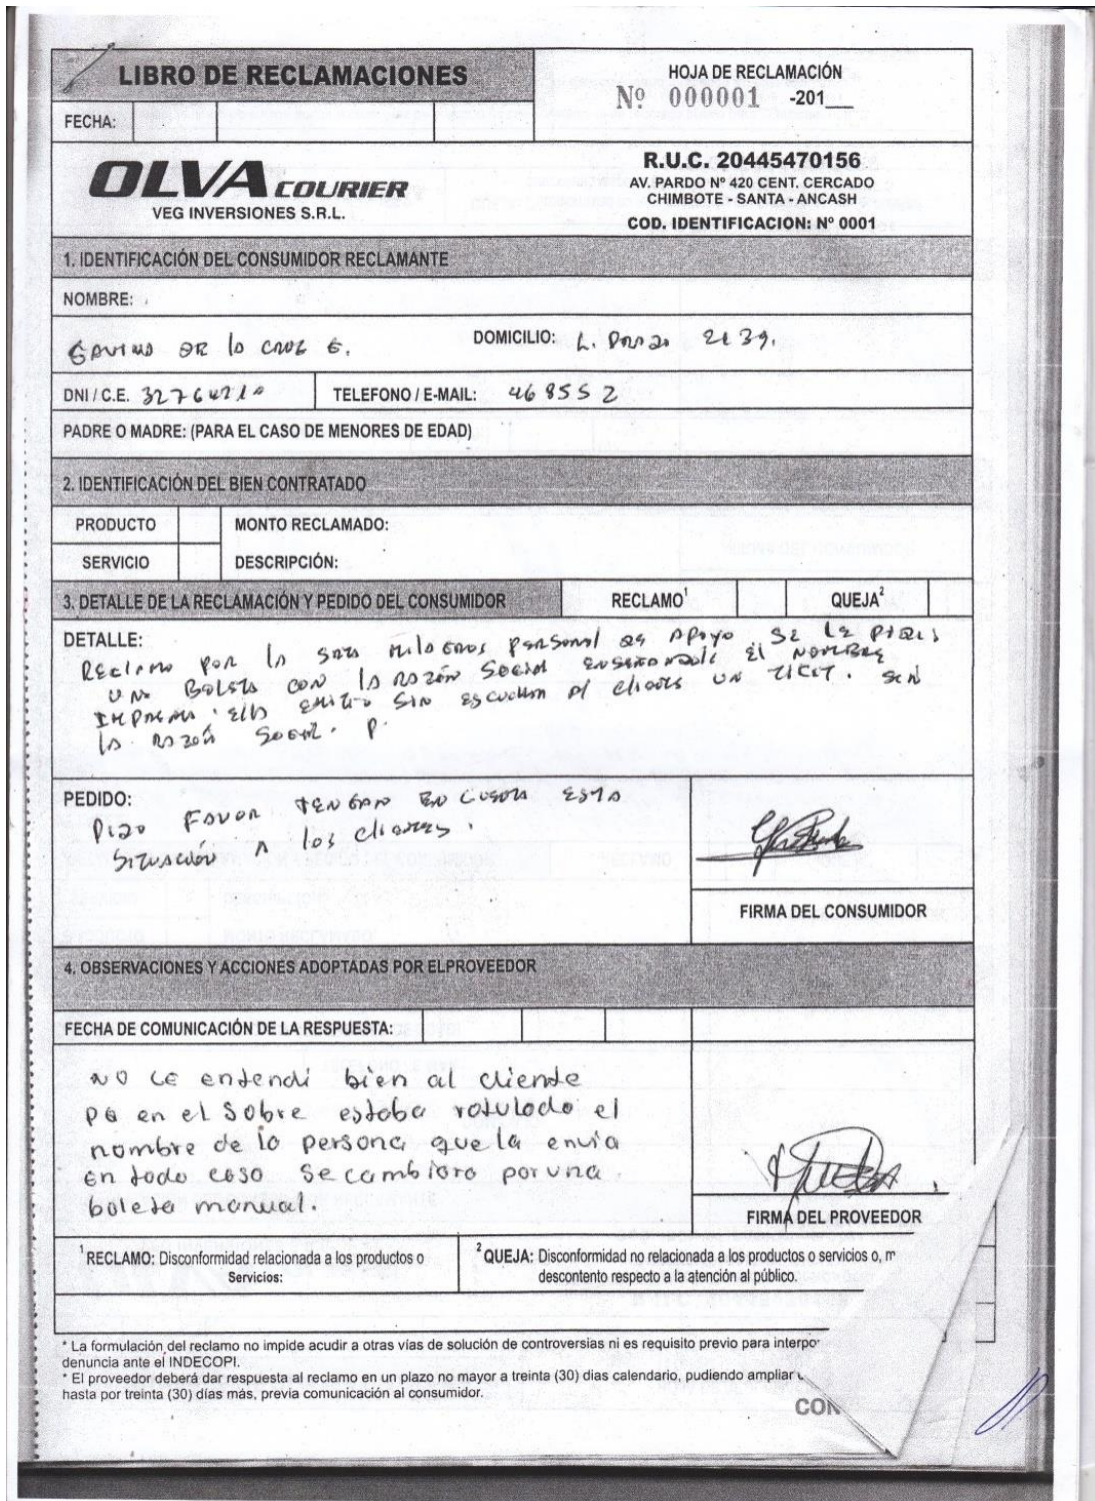 LIBRO DE RECLAMACIONES
HOJA DE RECLAMACIÓN
Nº 000001 -201__
FECHA:
OLVA COURIER
VEG INVERSIONES S.R.L.
R.U.C. 20445470156
AV. PARDO Nº 420 CENT. CERCADO
CHIMBOTE - SANTA - ANCASH
COD. IDENTIFICACION: Nº 0001
1. IDENTIFICACIÓN DEL CONSUMIDOR RECLAMANTE
NOMBRE:
GAVINO DE la CRUZ G. DOMICILIO: L. Prado 2139.
DNI / C.E. TELEFONO / E-MAIL: 468552
PADRE O MADRE: (PARA EL CASO DE MENORES DE EDAD)
2. IDENTIFICACIÓN DEL BIEN CONTRATADO
PRODUCTO MONTO RECLAMADO:
SERVICIO DESCRIPCIÓN:
3. DETALLE DE LA RECLAMACIÓN Y PEDIDO DEL CONSUMIDOR RECLAMO¹ QUEJA²
DETALLE:
Reclamo por la Srta Milagros personal de apoyo se le
una Boleta con la razón Social el NOMBRE
ella emitio sin escuchar al cliente un
la razón Social. P
PEDIDO:
Pido FAVOR TENGAN EN cuenta ESTA
Situación A los clientes.
FIRMA DEL CONSUMIDOR
4. OBSERVACIONES Y ACCIONES ADOPTADAS POR ELPROVEEDOR
FECHA DE COMUNICACIÓN DE LA RESPUESTA:
NO LE entendi bien al cliente
PQ en el Sobre estaba rotulado el
nombre de la persona que la envia
en todo caso se cambiara por una
boleta manual.
FIRMA DEL PROVEEDOR
¹RECLAMO: Disconformidad relacionada a los productos o
Servicios:
²QUEJA: Disconformidad no relacionada a los productos o servicios o, m
descontento respecto a la atención al público.
* La formulación del reclamo no impide acudir a otras vías de solución de controversias ni es requisito previo para interpo
denuncia ante el INDECOPI.
* El proveedor deberá dar respuesta al reclamo en un plazo no mayor a treinta (30) dias calendario, pudiendo ampliar
hasta por treinta (30) días más, previa comunicación al consumidor.
CON